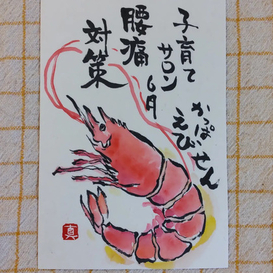 子育て
サロン
6月
腰痛
対策
かっぱ
えびせん
真